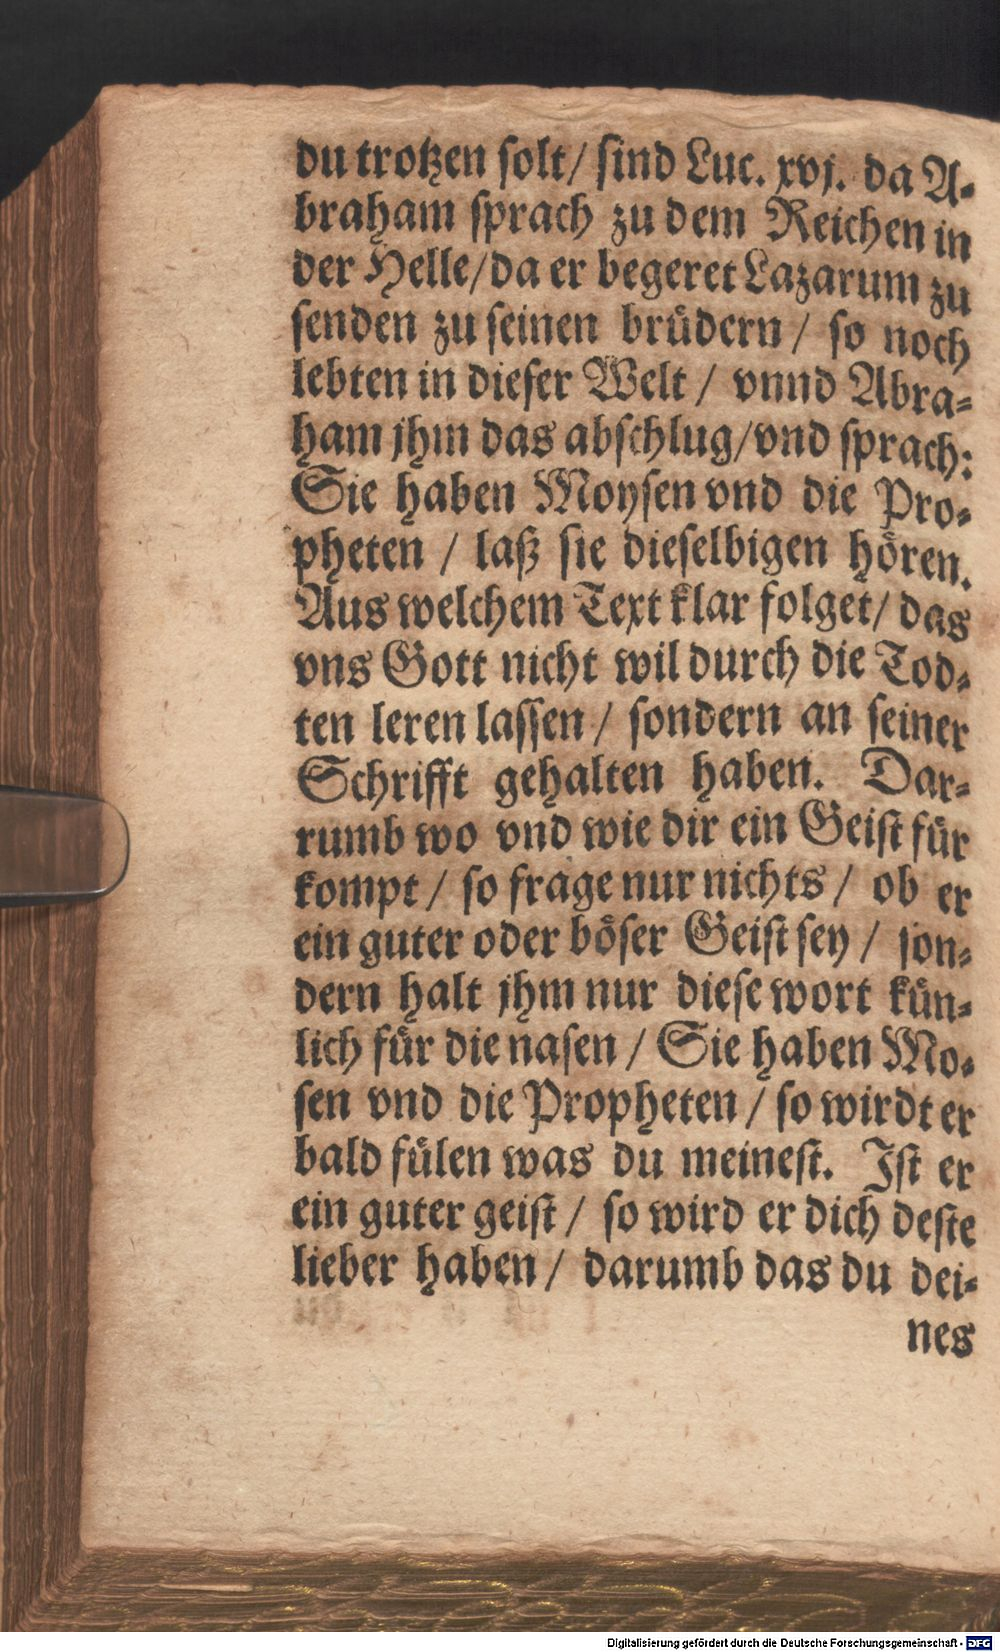 du trotzen solt/ sind Luc. xvj. da A-
braham sprach zu dem Reichen in
der Helle/ da er begeret Lazarum zu
senden zu seinen bruͤdern / so noch
lebten in dieser Welt / vnnd Abra-
ham jhm das abschlug/ vnd sprach:
Sie haben Moysen vnd die Pro-
pheten / laß sie dieselbigen hoͤren.
Aus welchem Text klar folget/ das
vns Gott nicht wil durch die Tod-
ten leren lassen / sondern an seiner
Schrifft gehalten haben. Dar-
rumb wo vnd wie dir ein Geist fuͤr
kompt / so frage nur nichts / ob er
ein guter oder boͤser Geist sey / son-
dern halt jhm nur diese wort kuͤn-
lich fuͤr die nasen / Sie haben Mo-
sen vnd die Propheten / so wirdt er
bald fuͤlen was du meinest. Ist er
ein guter geist / so wird er dich deste
lieber haben / darumb das du dei-
nes
Digitalisierung gefördert durch die Deutsche Forschungsgemeinschaft - DFG